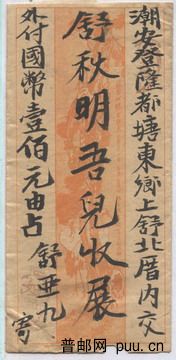 潮安登隆都塘東鄉上舒北厝內交
舒秋明吾兒收展
外付國幣壹佰元由占 舒亜九
寄
普邮网-puu.cn